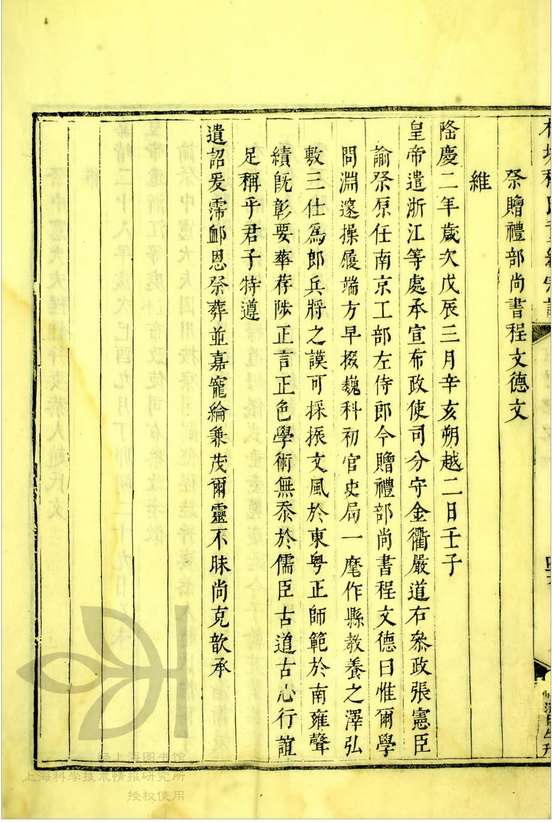 祭贈禮部尚書程文德文
維
隆慶二年歲次戊辰三月辛亥朔越二日壬子
皇帝遣浙江等處承宣布政使司分守金衢嚴道右叅政張憲臣
諭祭原任南京工部左侍郎今贈禮部尚書程文德曰惟爾學
問淵邃操履端方早掇巍科初官史局一麾作縣教養之澤弘
敷三仕為郎兵將之謨可採振文風於東粤正師範於南雍聲
績旣彰要華荐陟正言正色學術無忝於儒臣古道古心行誼
足稱乎君子特遵
遺詔爰霈卹恩祭葬並嘉寵綸兼茂爾靈不昧尚克歆承
上海圖書館
上海科学技术情报研究所
授权使用